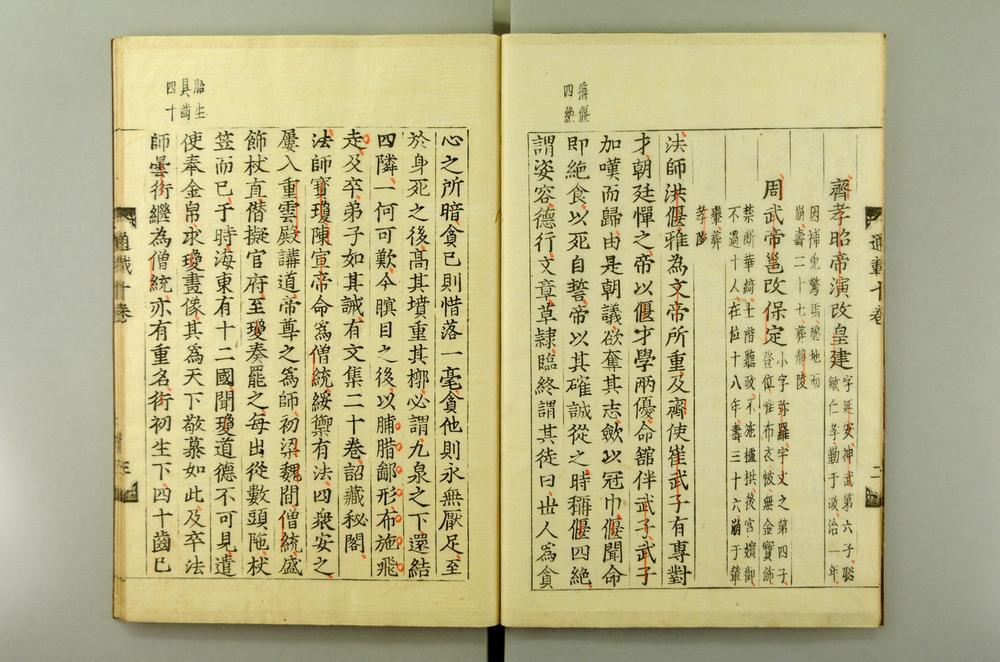 稱偃
四絶
齊孝昭帝演改皇建字延安神武第六子聡
敏仁孝勤于政治一年
因補兎驚馬墮地而
崩壽二十七葬静陵
周武帝邕改保定小字弥羅宇文之第四子
登位唯布衣被無金寶餙
禁断華綺土階聽政不施櫨拱後宮嬪御
不過十人在位十八年壽三十六崩于輦
轝葬
孝陵
法師洪偃雅為文帝所重及齊使崔武子有專對
才朝廷憚之帝以偃才學兩優命舘伴武子武子
加嘆而歸由是朝議欲奪其志歛以冠巾偃聞命
即絶食以死自誓帝以其確誠從之時稱偃四絶
謂姿容德行文章草隷臨終謂其徒曰世人為貪
胎生
具齒
四十
心之所暗貪已則惜落一毫貪他則永無厭足至
於身死之後髙其墳重其槨必謂九泉之下還結
四隣一何可歎今瞋目之後以脯腊鄙形布施飛
走及卒弟子如其誡有文集二十卷詔藏秘閣
法師寶瓊陳宣帝命爲僧統綏禦有法四衆安之
屢入重雲殿講道帝尊之爲師初梁魏間僧統盛
飾杖直僣擬官府至瓊奏罷之每出從數頭陁杖
笠而已于時海東有十二國聞瓊道德不可見遣
使奉金帛求瓊畫像其爲天下敬慕如此及卒法
師曇衍繼為僧統亦有重名衍初生下四十齒已